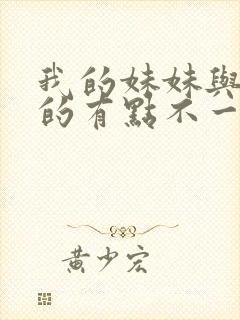 我的妹妹與
的有點不一
黃少宏